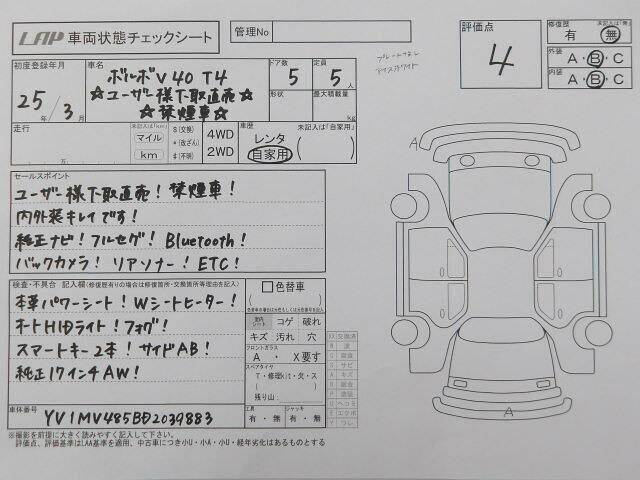 LAP 車両状態チェックシート
管理No
評価点
4
修復歴 未記入は「無」
有 ・ 無
外装
A・B・C
内装
A・B・C
初度登録年月
25年/3月
車名
ボルボV40 T4
☆ユーザー様下取直売☆
☆禁煙車☆
ドア数
5
定員
5人
形状
最大積載量
kg
走行
未記入は「km」
万
マイル
km
$(交換)
*(改ざん)
#(不明)
4WD
2WD
車歴 未記入は「自家用」
レンタ
自家用
( )
セールスポイント
ユーザー様下取直売! 禁煙車!
内外装キレイです!
純正ナビ! フルセグ! Bluetooth!
バックカメラ! リアソナー! ETC!
検査・不具合 記入欄(修復歴有りの場合は修復箇所・交換箇所等理由を記入)
本革パワーシート! Wシートヒーター!
オートHIDライト! フォグ!
スマートキー2本! サイドAB!
純正17インチAW!
色替車
( )
室内シート
コゲ 破れ
キズ 汚れ 穴
フロントガラス
A ・ X要す
スペアタイヤ
T・修理kit・欠・ス
( )
残り山:
工具
有・無
ジャッキ
有・無
車体番号
YV1MV485BD2039883
※撮影を前提に大きく読みやすく記入して下さい。
評価点、評価基準はLAA基準を適用、中古車につき小U・小A・小U・経年劣化はあるものとする
XX 交換済
A
A